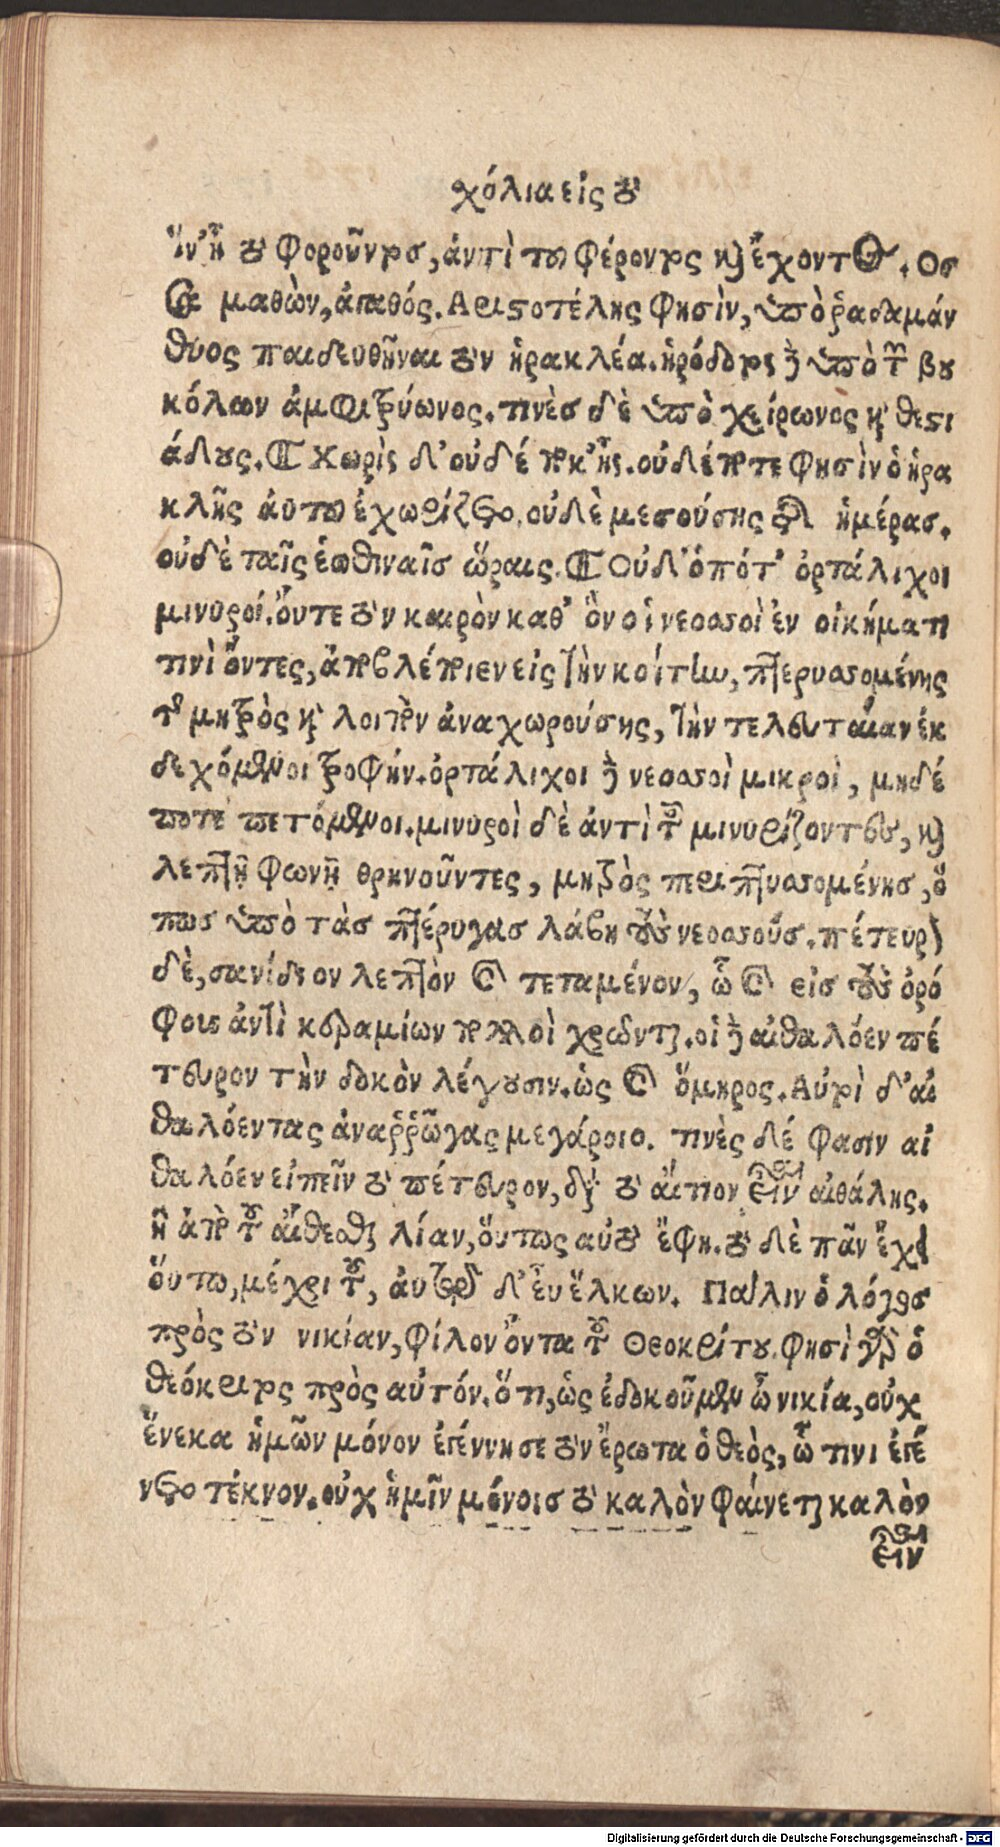 χόλια εἰς τὸ
ἵν' ἦ τὸ φοροῦντος, ἀντὶ τοῦ φέροντος καὶ ἔχοντος. Οσ
σα μαθὼν, ἀγαθός. Αριστοτέλης φησὶν, ὑπὸ ῥαδαμάν
θυος παιδευθῆναι τὸν ἡρακλέα. ἡρόδοτος δὲ ὑπὸ τῶν βου
κόλων ἀμφιτρύωνος. τινὲσ δὲ ὑπὸ χείρωνος καὶ θεστι
άδους. Χωρὶς δ' οὐδέποκ' ἦς. οὐδέποτε φησὶν ὁ ἡρα
κλῆς αὐτοῦ ἐχωρίζετο, οὐδὲ μεσούσης τῆς ἡμέρασ.
οὐδὲ ταῖς ἑωθιναῖσ ὥραις. Οὐδ' ὁπότ' ὀρτάλιχοι
μινυροί. οὔτε τὸν καιρὸν καθ' ὃν οἱ νεοσσοὶ ἐν οἰκήματι
τινὶ ὄντες, ἀποβλέποιεν εἰς τὴν κοίτην, πτερυσσομένης
τῆς μητρὸς καὶ λοιπὸν ἀναχωρούσης, τὴν τελευταίαν ἐκ
δεχόμενοι τροφήν. ὀρτάλιχοι δὲ νεοσσοὶ μικροὶ, μηδέ
ποτε πετόμενοι. μινυροὶ δὲ ἀντὶ τοῦ μινυρίζοντες, καὶ
λεπτῇ φωνῇ θρηνοῦντες, μητρὸς περιπτυσσομένησ, ὅ
πωσ ὑπὸ τὰσ πτέρυγασ λάβῃ τοὺς νεοσσούσ. πέτευρον
δὲ, σανίδιον λεπτὸν τὸ τεταμένον, ᾧ καὶ εἰσ τοὺς ὀρό
φους ἀντὶ κεραμίων πολλοὶ χρῶνται. οἱ δὲ αἰθαλόεν πέ
τευρον τὴν δοκὸν λέγουσιν. ὡς καὶ ὅμηρος. Αὐτοὶ δ' αἰ
θαλόεντας ἀναῤῥῶγας μεγάροιο. τινὲς δέ φασιν αἰ
θαλόεν εἰπεῖν τὸ πέτευρον, διὰ τὸ αἴτιον εἶναι αἰθάλης.
ἢ ἀπὸ τοῦ αἴθεσθαι λίαν, οὕτως αὐτὸ ἔφη. τὸ δὲ πᾶν ἔχει
οὕτω, μέχρι τοῦ, αὐτῷ δ' εὖ ἕλκων. Πάλιν ὁ λόγοσ
πρὸς τὸν νικίαν, φίλον ὄντα τοῦ Θεοκρίτου. φησὶ γὰρ ὁ
θεόκριτος πρὸς αὐτόν. ὅτι, ὡς ἐδοκοῦμεν ὦ νικία, οὐχ
ἕνεκα ἡμῶν μόνον ἐγέννησε τὸν ἔρωτα ὁ θεὸς, ᾧ τινι ἐγέ
νετο τέκνον. οὐχ ἡμῖν μόνοισ τὸ καλὸν φαίνεται καλὸν
εἶναι